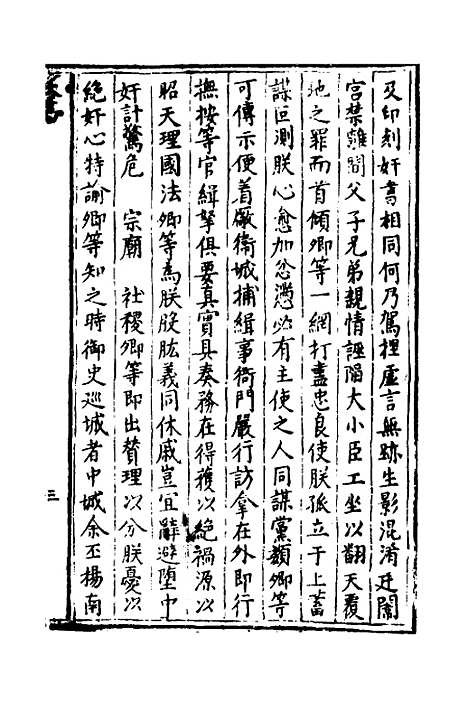 及印刻奸書相同何乃駕捏虛言無跡生影混淆廷闈
宮禁離間父子兄弟親情誣陷大小臣工坐以翻天覆
地之罪而首傾卿等一網打盡忠良使朕孤立于上蓄
謀叵測朕心愈加忿懣必有主使之人同謀黨類卿等
可傳示便着廠衛城捕緝事衙門嚴行訪拿在外即行
撫按等官緝拏俱要真實具奏務在得獲以絕禍源以
昭天理國法卿等為朕股肱義同休戚豈宜辭避墮中
奸計驚危 宗廟 社稷卿等即出贊理以分朕憂以
絕奸心特諭卿等知之時御史巡城者中城余丕楊南
三